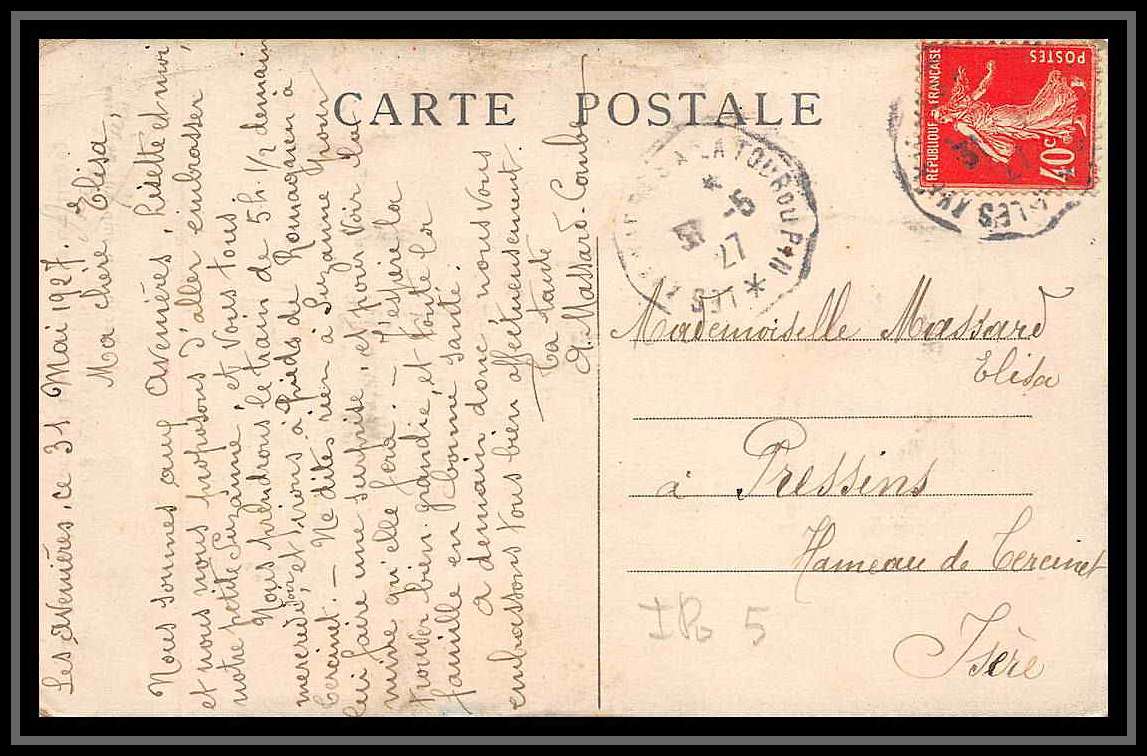 CARTE POSTALE
Les Avenières, ce 31 Mai 1927.
Ma chère Elisa,
Nous sommes aux Avenières, Lisette et moi,
et nous nous proposons d'aller embrasser
notre petite Suzanne, et vous tous.
Nous prendrons le train de 5h. 1/2 demain
mercredi soir, et irons à pieds de Romagnieu à
Cercinet. — Ne dites rien à Suzanne pour
lui faire une surprise, et pour voir la
mine qu'elle fera. — J'espère la
trouver bien grandie, et toute la
famille en bonne santé.
A demain donc nous vous
embrassons tous bien affectueusement.
Ta tante
A. Massard-Combe
REPUBLIQUE FRANÇAISE
POSTES
40c
LA TOUR DU PIN
LES
31
-5
27
Mademoiselle Massard
Elisa
à Pressins
Hameau de Cercinet
Isère
5